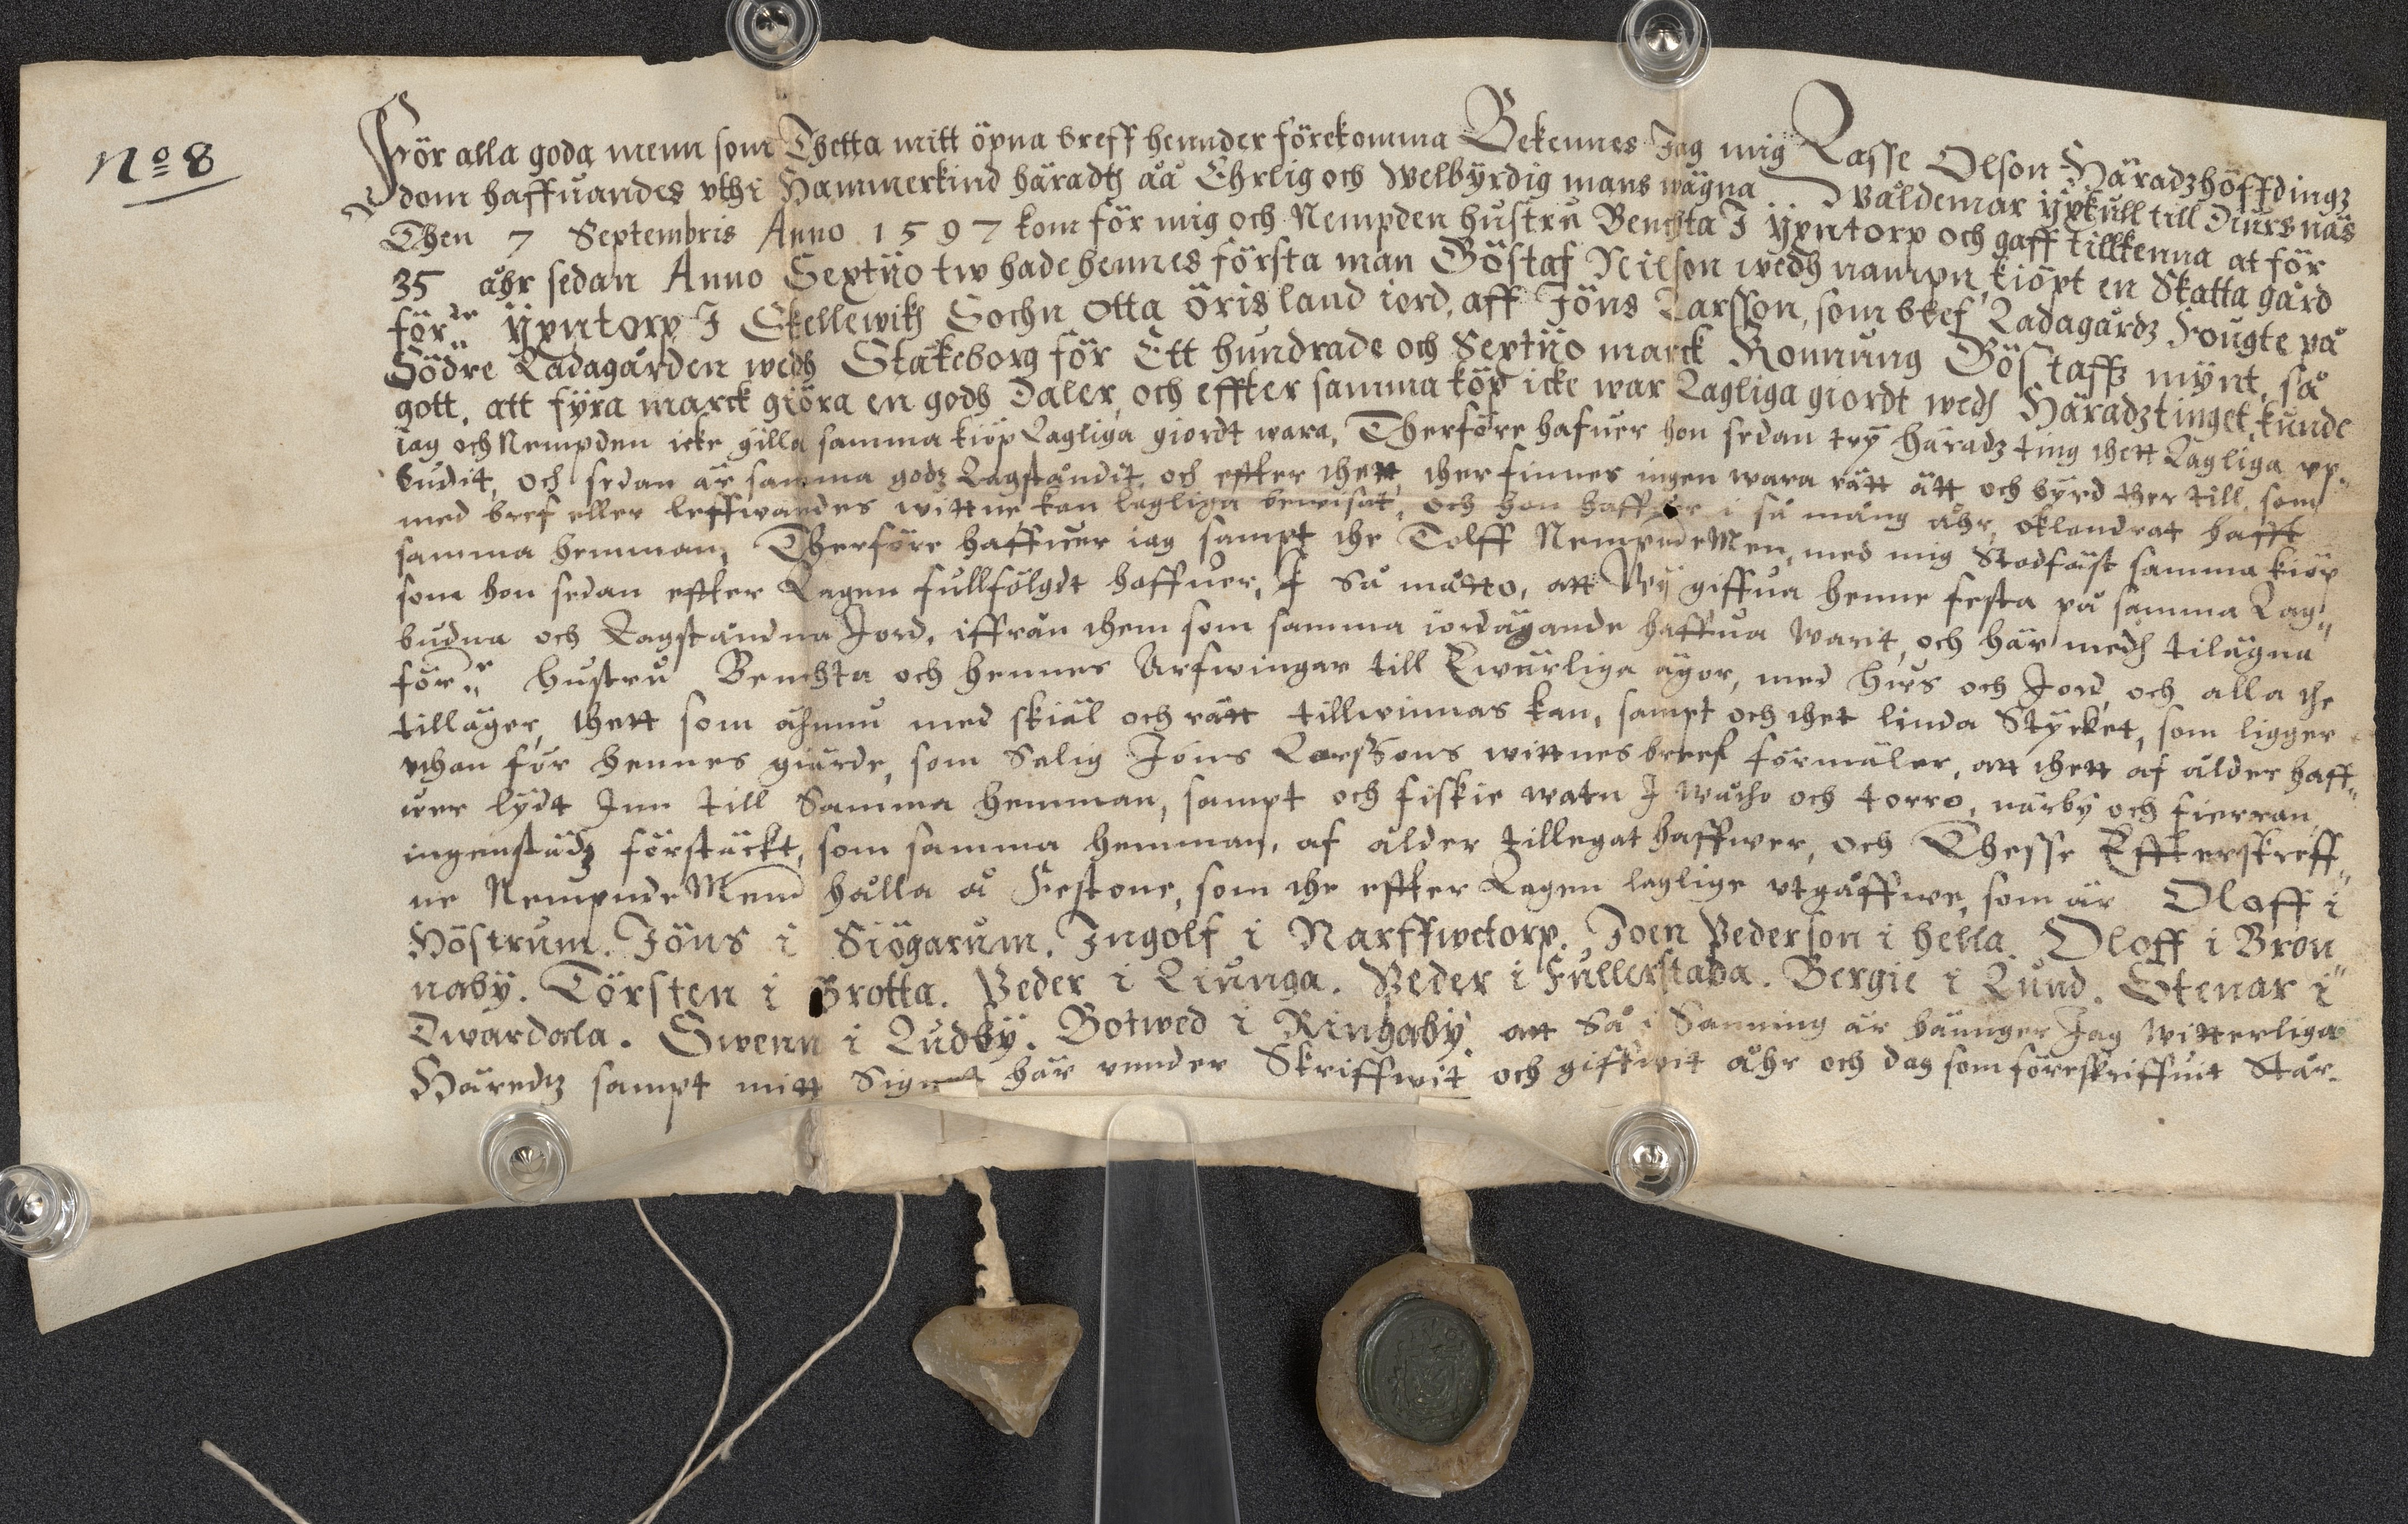 No 8
För alla goda menn som Thetta mitt öpna breff hennder förekomma Bekennes Jag mig Lasse Olson Häradzhöffdingz
dom haffuandes vthi Hammerkind häradtz åå Ehrlig och welbyrdig mans wägna Wäldemar ÿxkull till Diursnäs
Then 7 Septembris Anno 1597 kom för mig och Nempden hustru Benchta I Ÿxntorp och gaff tillkenna at för
35 åhr sedan Anno Sextiio tw hade hennes första man Göstaf Nilson wedh nampn, kiöpt en Skatta gård
för:ne Ÿxntorp I Skellewiks Sochn Otta örisland iord, aff Jöns Larsson, som blef Ladagårdz Fougte på
Södre Ladagården wedh Stäkeborg för Ett hundrade och Sextiio marck Konnung Göstaffz mÿnt, så
gott, att fÿra marck giöra en godh Daler, och effter samma köp icke war Lagliga giordt wedh Häradztinget, kunde
iag och Nempden icke gilla samma kiöp Lagliga giordt wara, Therföre hafuer hon sedan trÿ häradz ting thett Lagliga vp„
budit, och sedan är samma godz Lagståndit, och effter thett, ther finnes ingen wara rätt ätt och bÿrd ther till, som
med bref eller leffwandes wittne kan lagliga bewisat, och hon haffuer i så mång åhr, oklandrat hafft
samma hemman, Therföre haffuer iag sampt the Tolff NempndeMen, med mig Stadfäst samma kiöp
som hon sedan effter Lagen fullfölgdt haffuer, I så måtto, att Wÿ giffua henne festa på samma Lag„
budna och Lagståndna Jord, iffrån them som samma iordägande haffua warit, och här medh tilägna
för:ne hustru Benchta och hennes Arfwingar till Ewärliga ägor, med hws och Jord, och alla the
tilläger, thett som åhnnu med skiäl och rätt tillwinnas kan, sampt och thet linda Stÿcket, som ligger
vthan för hennes giärde, som Salig Jöns Larssons wittnes breef förmäler, att thett af ålder haff„
wer lÿdt Inn till Samma hemman, sampt och fiskie watn I wåtho och torro, närbÿ och fierran,
ingenstädz förstäckt, som samma hemman, af ålder tillegat haffwer, och Thesse Effterskreff„
ne NempndeMenn hålla å Festone, som the effter Lagen laglige vtgåffwe, som är Oloff i
Höstrum. Jöns i Siögarum. Ingolf i Narffwetorp. Joen Pederson i hella. Oloff i Bron„
nabÿ. Torsten i Brotta. Peder i Liunga. Peder i Fullerstada. Bergie i Lund. Stenar i
Twardala. Swenn i Ludbÿ. Botwed i Ringabÿ. att Så i Sanning är hännger Jag witterliga
Häredtz sampt mitt Signet här vnnder Skriffwit och giffwit åhr och dag som föreskriffuit Står.